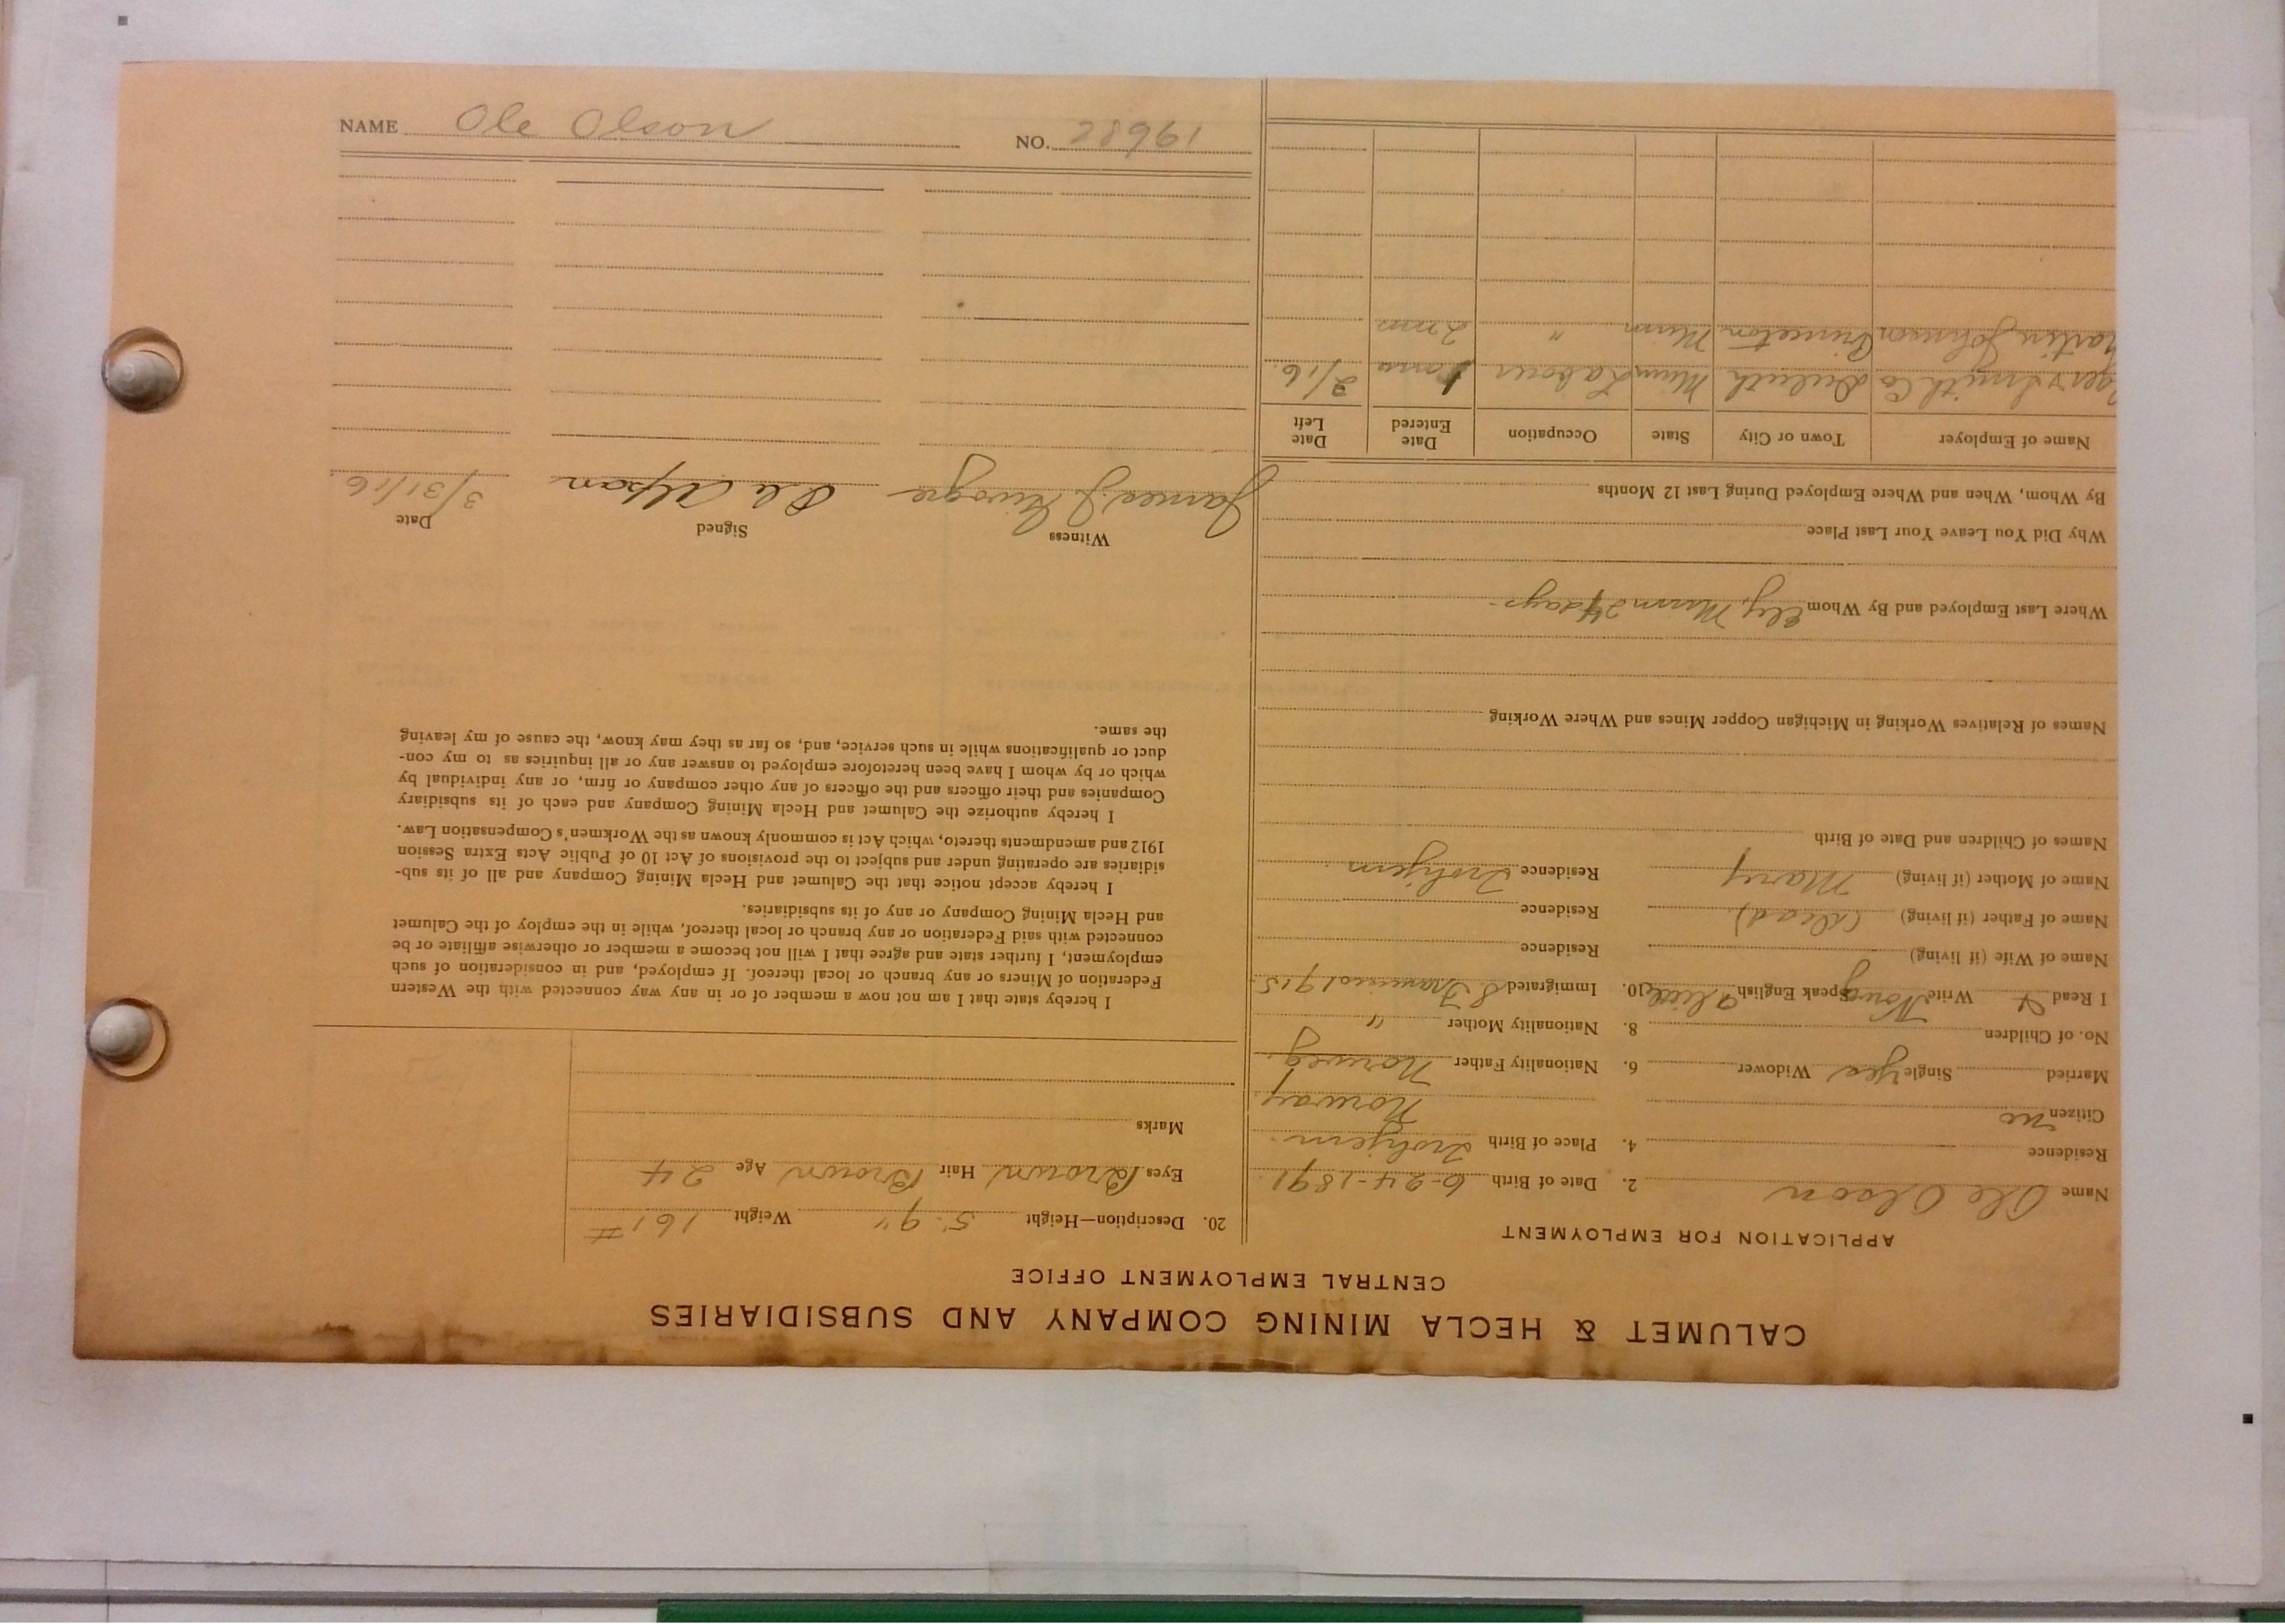 CALUMET & HECLA MINING COMPANY AND SUBSIDIARIES
CENTRAL EMPLOYMENT OFFICE
APPLICATION FOR EMPLOYMENT
Name Ole Olson 2. Date of Birth 6-24-1891
Residence 4. Place of Birth Trohjem
Citizen no Norway
Married Single Yes Widower 6. Nationality Father Norweg.
No. of Children 8. Nationality Mother "
I Read Write Norweg Speak English 10. Immigrated 1915
Name of Wife (if living) Residence
Name of Father (if living) (dead) Residence
Name of Mother (if living) Mary Residence Trohjem
Names of Children and Date of Birth
Names of Relatives Working in Michigan Copper Mines and Where Working
Where Last Employed and By Whom Ely, Minn 24 days
Why Did You Leave Your Last Place
By Whom, When and Where Employed During Last 12 Months
Name of Employer Town or City State Occupation Date Entered Date Left
& Smith Co Duluth Minn Laborer 2/16.
Martin Johnson Princeton Minn " 2 mos
20. Description—Height 5' 9" Weight 161 #
Eyes Brown Hair Brown Age 24
Marks
I hereby state that I am not now a member of or in any way connected with the Western
Federation of Miners or any branch or local thereof. If employed, and in consideration of such
employment, I further state and agree that I will not become a member or otherwise affiliate or be
connected with said Federation or any branch or local thereof, while in the employ of the Calumet
and Hecla Mining Company or any of its subsidiaries.
I hereby accept notice that the Calumet and Hecla Mining Company and all of its sub-
sidiaries are operating under and subject to the provisions of Act 10 of Public Acts Extra Session
1912 and amendments thereto, which Act is commonly known as the Workmen's Compensation Law.
I hereby authorize the Calumet and Hecla Mining Company and each of its subsidiary
Companies and their officers and the officers of any other company or firm, or any individual by
which or by whom I have been heretofore employed to answer any or all inquiries as to my con-
duct or qualifications while in such service, and, so far as they may know, the cause of my leaving
the same.
Witness Signed Date
James J. Ole Olson 3/31/16.
NAME Ole Olson NO. 28961